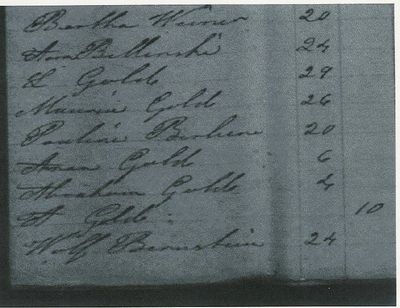 Bertha Werner 20
Sam Billenski 24
L Golds 29
Maurice Gold 26
Pauline 20
Gold 6
Abraham Golds 4
A Glds. 10
Wolf Bernstein 24